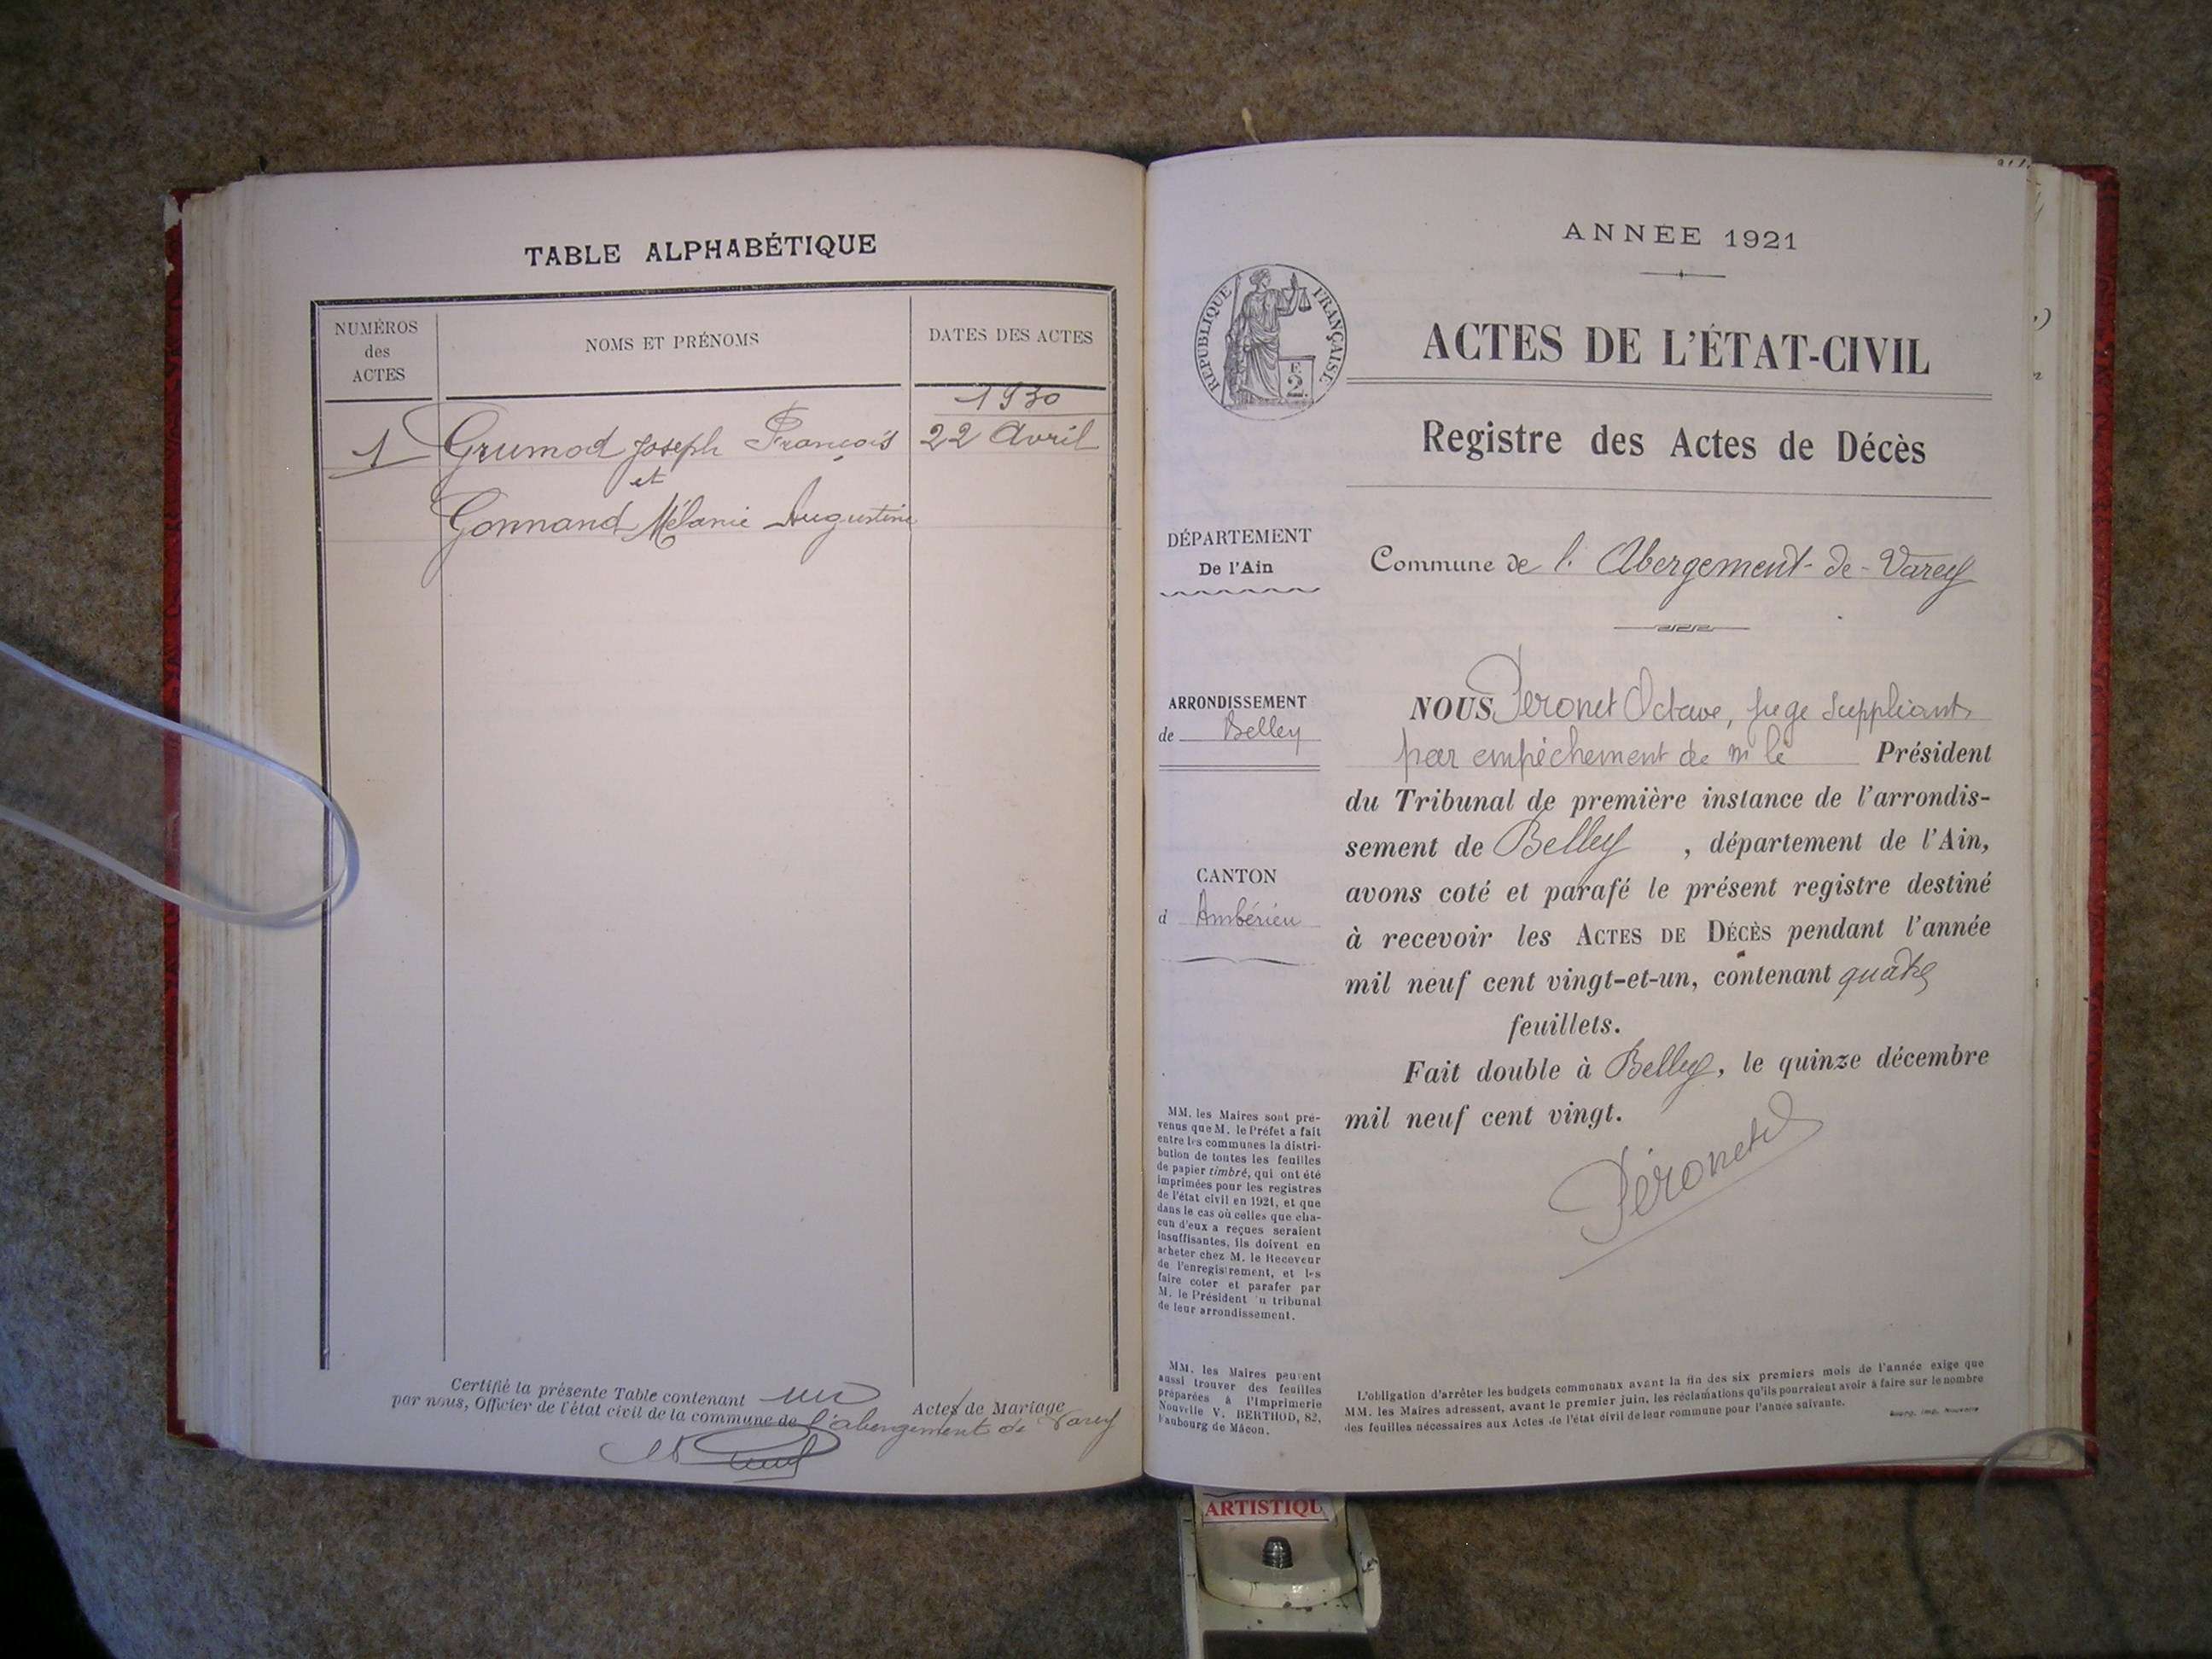 TABLE ALPHABÉTIQUE
NUMÉROS
des
ACTES
NOMS ET PRÉNOMS
DATES DES ACTES
1930
1 Grumod Joseph François 22 Avril
et
Gonnand Mélanie Augustine
Certifié la présente Table contenant un Actes de Mariage
par nous, Officier de l'état civil de la commune de l'abergement de Varey
ANNÉE 1921
RÉPUBLIQUE FRANÇAISE
2
ACTES DE L'ÉTAT-CIVIL
Registre des Actes de Décès
DÉPARTEMENT
De l'Ain
Commune de l'Abergement-de-Varey
ARRONDISSEMENT
de Belley
CANTON
d Ambérieu
NOUS Peronet Octave, juge suppléant
par empêchement de m le Président
du Tribunal de première instance de l'arrondis-
sement de Belley, département de l'Ain,
avons coté et parafé le présent registre destiné
à recevoir les ACTES DE DÉCÈS pendant l'année
mil neuf cent vingt-et-un, contenant quatre
feuillets.
Fait double à Belley, le quinze décembre
mil neuf cent vingt.
Péronet
MM. les Maires sont pré-
venus que M. le Préfet a fait
entre les communes la distri-
bution de toutes les feuilles
de papier timbré, qui ont été
imprimées pour les registres
de l'état civil en 1921, et que
dans le cas où celles que cha-
cun d'eux a reçues seraient
insuffisantes, ils doivent en
acheter chez M. le Receveur
de l'enregistrement, et les
faire coter et parafer par
M. le Président u tribunal
de leur arrondissement.
MM. les Maires peuvent
aussi trouver des feuilles
préparées à l'Imprimerie
Nouvelle V. BERTHOD, 82,
Faubourg de Mâcon.
L'obligation d'arrêter les budgets communaux avant la fin des six premiers mois de l'année exige que
MM. les Maires adressent, avant le premier juin, les réclamations qu'ils pourraient avoir à faire sur le nombre
des feuilles nécessaires aux Actes de l'état civil de leur commune pour l'année suivante.
Bourg, Imp. Nouvelle
ARTISTIQU